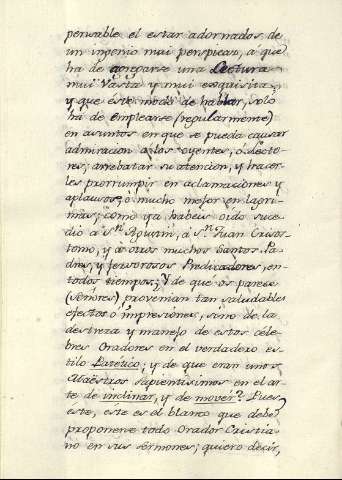 pensable el estar adornados de
un ingenio mui perspicaz, a que
há de agregarse una Lectura
mui Vasta y mui exquisita,
y que éste modo de hablar, solo
há de emplearse (regularmente)
en asuntos en que se pueda causar
admiracion a los oyentes, o Lecto-
res; arrebatar su atención, y hacer-
les prorrumpir en aclamaciones y
aplausos, ó mucho mejor en lagri-
mas; como ya habeis oido suce-
dió a Sn. Agustin, á Sn. Juan Crisos-
tomo, y a otros muchos Santos Pa-
dres, y fervorosos Predicadores, en
todos tiempos; Y de que os parece
(señores) provenian tan saludables
efectos ó impresiones, sino de la
destreza y manejo de estos céle-
bres Oradores en el verdadero es-
tilo Patético; y de que eran unos
Maëstros sapientisimos en el ar-
te de inclinar, y de mover? Pues
éste, este es el blanco que debe
proponerse todo Orador Cristia-
no en sus sermones; quiero decir,